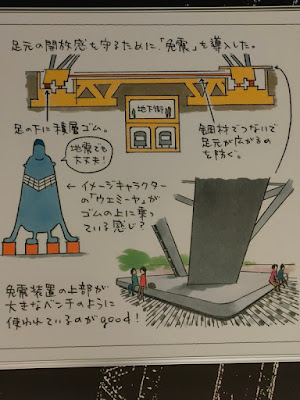 足元の開放感を守るために、「免震」を導入した。
地下街
足の下に積層ゴム。
鋼材でつないで
足元が広がるの
を防ぐ。
地震でも
大丈夫!
← イメージキャラクター
の「ウェミーヤ」が
ゴムの上に乗っ
ている感じ?
免震装置の上部が
大きなベンチのように
使われているのがgood!